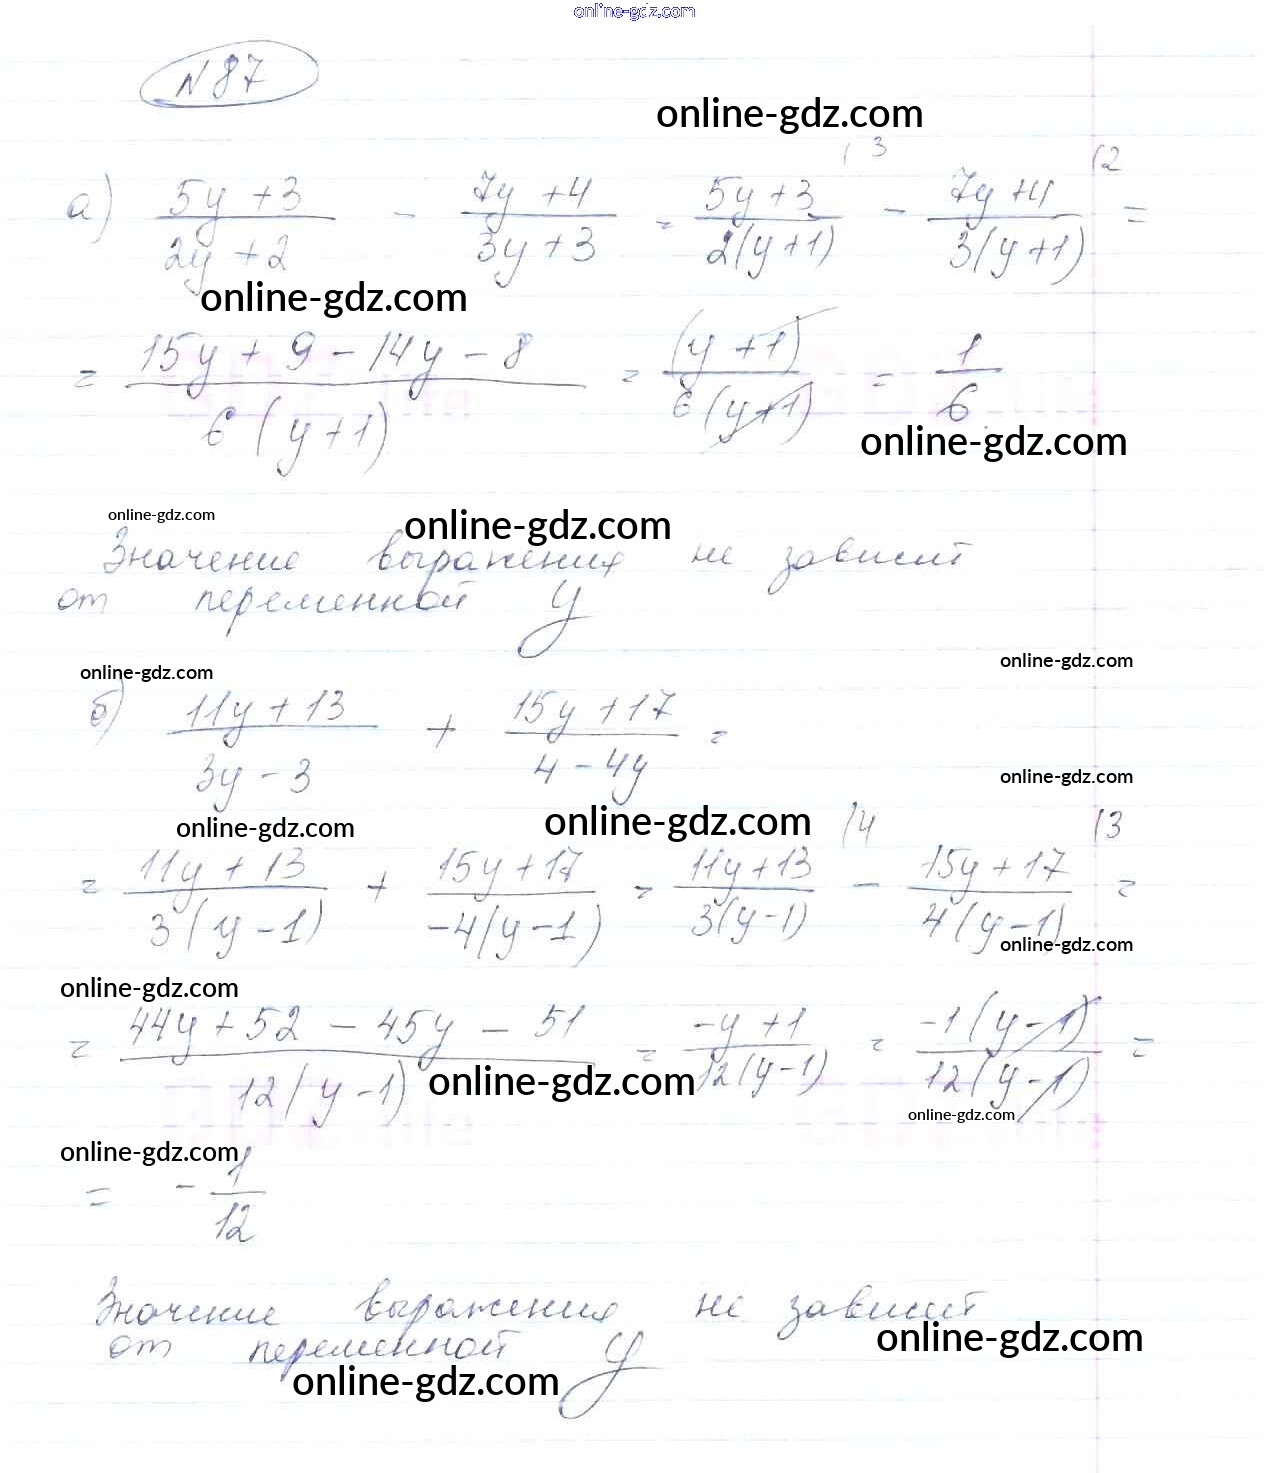 online-gdz.com
N 87
online-gdz.com
а) (5y+3)/(2y+2) - (7y+4)/(3y+3) = (5y+3)/(2(y+1)) (3 - (7y+4)/(3(y+1)) (2 =
online-gdz.com
= (15y+9-14y-8)/(6(y+1)) = (y+1)/(6(y+1)) = 1/6
online-gdz.com
online-gdz.com
online-gdz.com
Значение выражения не зависит
от переменной y
online-gdz.com
online-gdz.com
б) (11y+13)/(3y-3) + (15y+17)/(4-4y) =
online-gdz.com
online-gdz.com
online-gdz.com
= (11y+13)/(3(y-1)) + (15y+17)/(-4(y-1)) = (11y+13)/(3(y-1)) (4 - (15y+17)/(4(y-1)) (3 =
online-gdz.com
online-gdz.com
= (44y+52-45y-51)/(12(y-1)) = (-y+1)/(12(y-1)) = (-1(y-1))/(12(y-1)) =
online-gdz.com
online-gdz.com
online-gdz.com
= - 1/12
Значение выражения не зависит
от переменной y
online-gdz.com
online-gdz.com